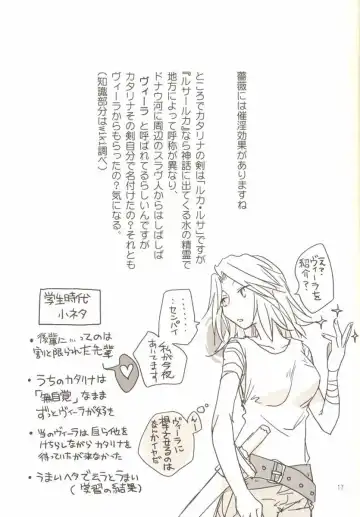 薔薇には催淫効果がありますね
ところでカタリナの剣は「ルカ・ルサ」ですが
『ルサールカ』なら神話に出てくる水の精霊で
地方によって呼称が異なり、
ドナウ河に周辺のスラヴ人からはしばしば
ヴィーラ と呼ばれてるらしいんですが
カタリナその剣自分で名付けたの？それとも
ヴィーラからもらったの？気になる。
（知識部分はwiki調べ）
えっ？
ヴィーラを
紹介？
私が今夜
あいてます
センパイ
ヴィーラに
なんかイヤだな
学生時代
小ネタ
・後輩に
割と限られた先輩
・うちのカタリナは
「無自覚」なまま
ずっとヴィーラが好き
・当のヴィーラは自ら他を
けちらしながら カタリナを
待っていたが来なかった
・うまいヘタでミラとうまい
（学習の結果）
17